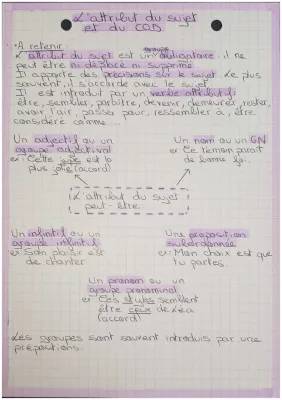 L'attribut du sujet
et du COD
• A retenir:
L'attribut du sujet est un groupe obligatoire. il ne
peut être ni déplacé ni supprimé.
Il apporte des précisions sur le sujet. Le plus
souvent, il s'accorde avec le sujet.
Il est introduit par un verbe attributif:
être, sembler, paraître, devenir, demeurer, rester,
avoir l'air, passer pour, ressembler à, être
considéré comme...
Un adjectif ou un
groupe adjectival
ex: Cette jupe est la
plus jolie (accord)
Un nom ou un GN
ex: Ce témoin paraît
de bonne foi.
L'attribut du sujet
peut-être:
Un infinitif ou un
groupe infinitif
ex: Son plaisir est
de chanter
Une proposition
subordonnée
ex: Mon choix est que
tu partes
Un pronom ou un
groupe pronominal
ex: Ces stylos semblent
être ceux de Léa
(accord)
Les groupes sont souvent introduits par une
préposition.